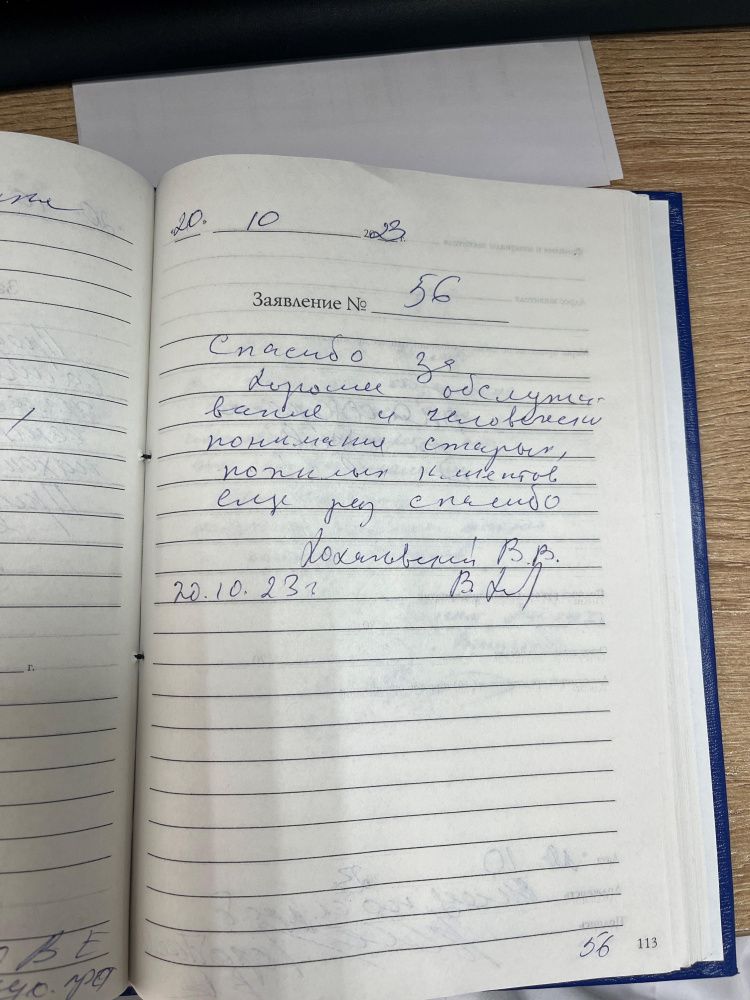 "20" 10 2023 г.
Заявление № 56
Спасибо за
хорошее обслужи-
вание и человечески
понимание старых,
пожилых клиентов
еще раз спасибо
В.В.
20.10.23 г
г.
В Е
56 113